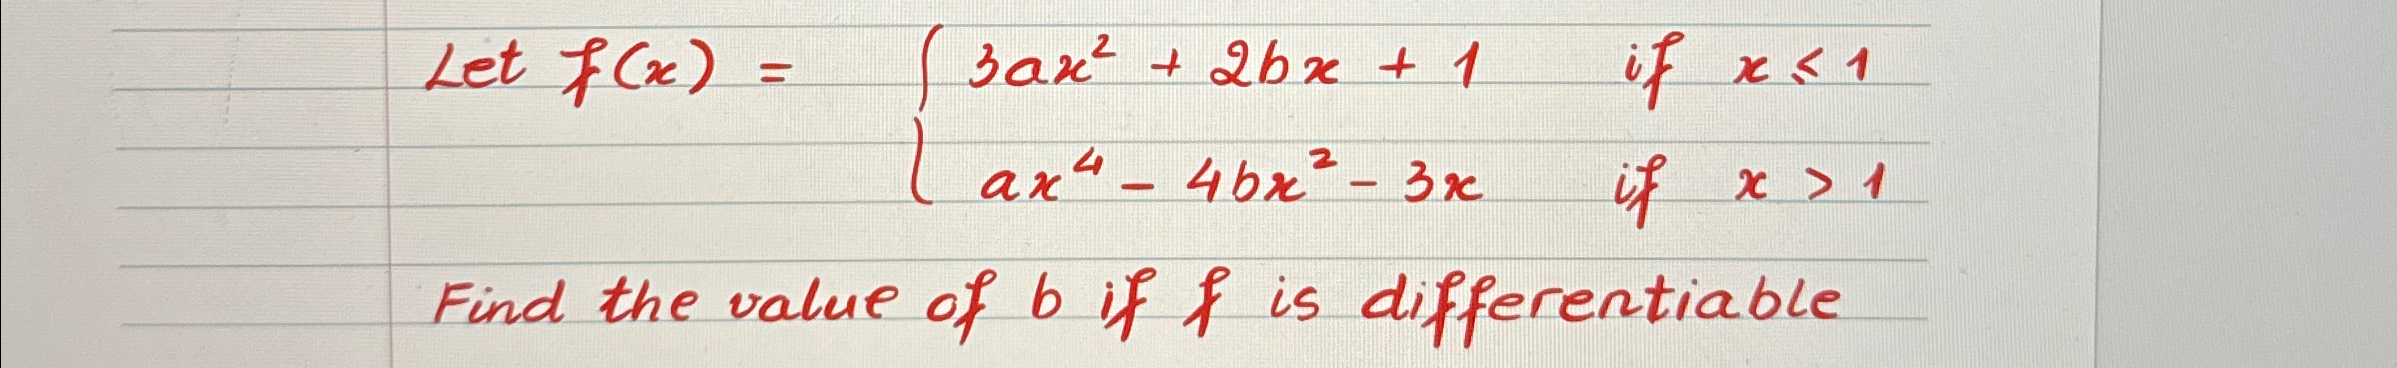 Let f(x) = { 3ax² + 2bx + 1 if x ≤ 1
ax⁴ - 4bx² - 3x if x > 1
Find the value of b if f is differentiable